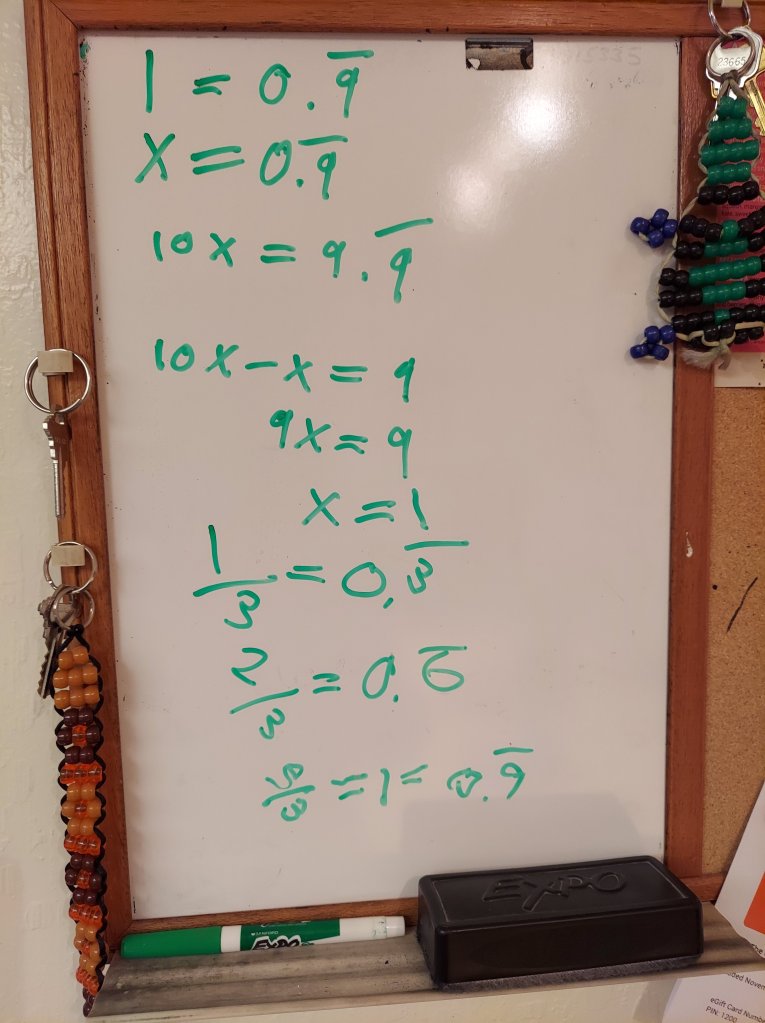 1 = 0.9̅
x = 0.9̅
10x = 9.9̅
10x - x = 9
9x = 9
x = 1
1/3 = 0.3̅
2/3 = 0.6̅
3/3 = 1 = 0.9̅
EXPO
EXPO
23665
eGift Card Numbe
PIN: 1200